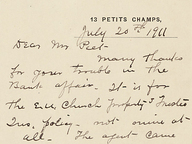 13 PETITS CHAMPS,
July 20th 1911
Dear Mr Peet-
Many thanks
for your trouble in the
Bank affair. It is for
the Eng. Church Property Trustee
Ins. policy - not mine at
all. The agent came